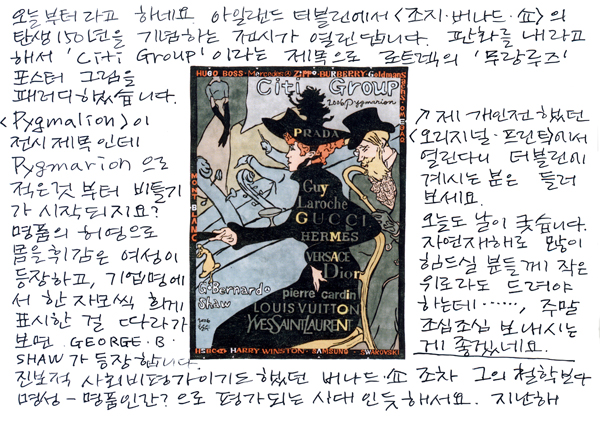 오늘부터라고 하네요. 아일랜드 더블린에서 <조지·버나드·쇼>의
탄생 150년을 기념하는 전시가 열린답니다. 판화를 내라고
해서 'Citi Group'이라는 제목으로 로트렉의 '무랑루즈'
포스터 그림을
패러디하였습니다.
<Pygmalion>이
전시제목인데
Pygmarion으로
적은것부터 비틀기
가 시작되지요?
명품의 허영으로
몸을 휘감은 여성이
등장하고, 기업명에
서 한 자모씩 희게
표시한 걸 따라가
보면 GEORGE·B·
SHAW가 등장합니다.
HUGO BOSS·Mercedes ZIPPO BURBERRY Goldmans
Citi Group
2006 Pygmarion
MONT BLANC
PRADA
Guy
Laroche
GUCCI
HERMES
VERSACE
Dior
G·Bernardo
Shaw
pierre cardin
LOUIS VUITTON
YVES SAINT LAURENT
2006
HARRY WINSTON·SAMSUNG·SWAROVSKI
제 개인전 했던
<오리지널·프린트>에서
열린다니 더블린에
계시는 분은 들러
보세요.
오늘도 날이 궂습니다.
자연재해로 많이
힘드실 분들께 작은
위로라도 드려야
하는데……, 주말
조심조심 보내시는
게 좋겠네요.
진보적 사회비평가이기도 했던 버나드·쇼조차 그의 철학보다
명성-명품인간?으로 평가되는 시대인듯해서요. 지난해